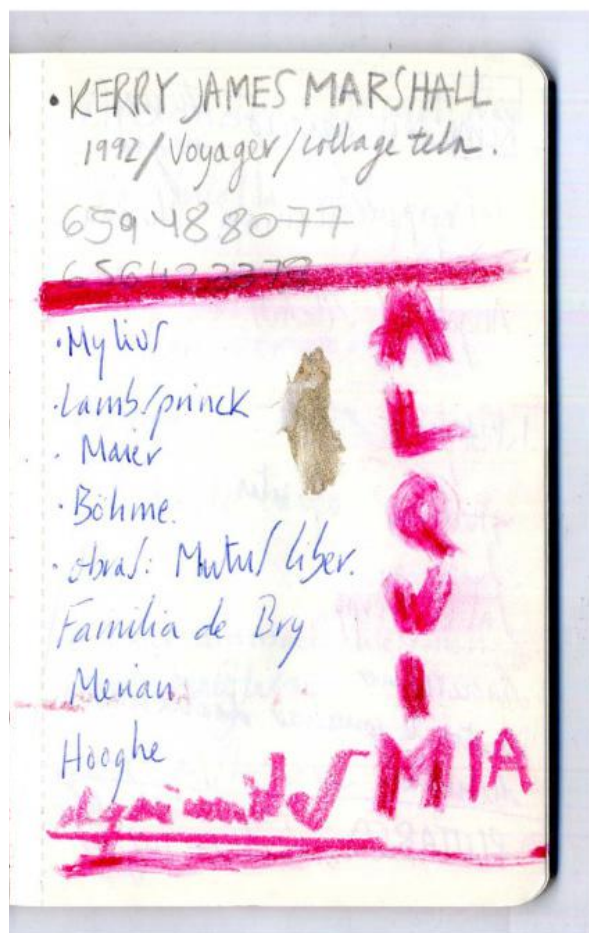 • KERRY JAMES MARSHALL
1992/Voyager/collage tela.
659 488077
ALQUIMIA
• Mylius
• Lambsprinck
• Maier
• Böhme.
• obras: Mutus liber.
Familia de Bry
Merian
Hooghe
alquimistas